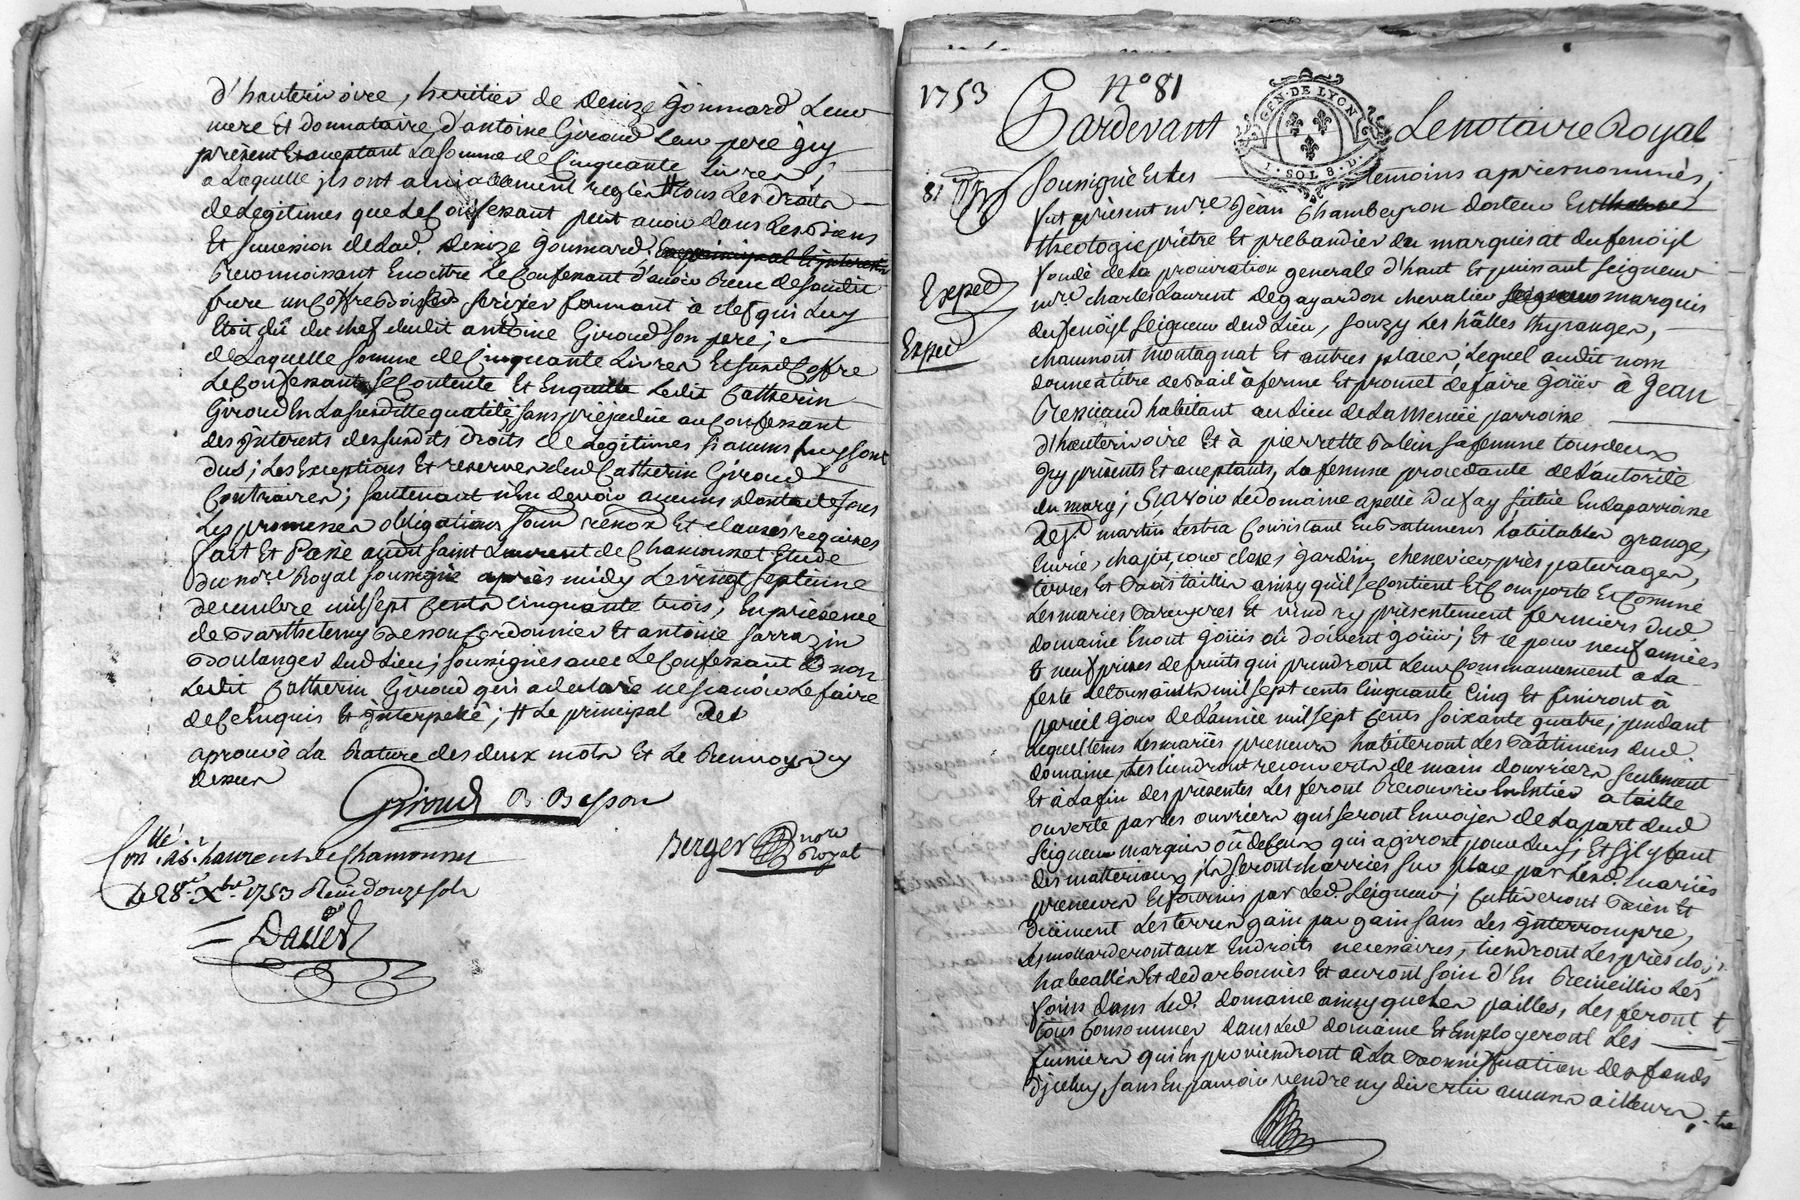 d'hauterivoire, heritier de Denize Goumard Leur
mere Et donnataire d'antoine Giroud Leur pere jcy
présent Et aceptant La somme de Cinquante Livres,
a Laquelle jls ont amiablement reglés # tous Les droits
de Legitimes que Le Confessant peut avoir dans Les biens
Et sucession de Lad. Denize Goumard,
Reconnoissant En outre Le Confessant d'avoir Receu de sondit
frere un Coffre bois serizier fermant a clef qui Luy
Etoit dû du chef dudit antoine Giroud son pere; -
de Laquelle somme de Cinquante Livres Et susd. Coffre
Le Confessant se Contente Et En quitte Ledit Catherin
Giroud En La susditte qualité sans préjudice au Confessant
des jnterets des susdits droits de Legitimes si aucuns luy sont
dus; Les Exceptions Et reserves dud Catherin Giroud
Contraires; soutenant n'en devoir aucuns
Les promesses obligations soum. renon. Et clauses requises
fait Et Passé audit saint Laurent de Chamousset Etude
du no.re Royal soussigné après midy Le vingt septieme
decembre mil sept Cents cinquante trois; En présence
de Barthelemy Besson Cordonnier Et antoine Sarrazin
Boulanger dud Lieu; soussignés avec Le Confessant Et non
Ledit Catherin Giroud qui a declaré ne sçavoir Le faire
de ce Enquis Et jnterpellé; # Le principal des
aprouvé La Rature des deux mots Et Le Renvoy cy
dessus
Giroud B. Besson
Berger nore Royal
Con.llé à S.t Laurent de Chamousset
Le 28.e X.bre 1753 Reçu douze sols
Daiier
1753 N° 81
Pardevant Le notaire Royal
GEN. DE LYON
SOL 8. D.
81
soussigné Et Les temoins apres nommés;
fut présent m.re Jean Chambeyron docteur En
theologie, prêtre Et prebandier du marquisat du fenoijl
fondé de La procuration generale d'haut Et puissant seigneur
m.re Charles Laurent de gayardon chevalier marquis
du fenoijl seigneur dud Lieu, souzy Les hâlles thyranges,
Exped
Exped
chaumont montagnat Et autres places; Lequel audit nom
donne à titre de Bail à ferme Et promet de faire joüir a Jean
Ressicaud habitant au Lieu de La Menüe parroisse
d'hauterivoire Et à pierrette Balein sa femme tous deux
jcy présents Et aceptants, La femme procedante de L'autorité
du mary; Sçavoir Le domaine apellé Du fay situé En La parroisse
de S.t martin Lestra Consistant En Batiments habitables grange,
Ecurie, chajat, cour closes, jardin, chenevier, près, paturages,
terres Et Bois taillis ainsy qu'il se contient Et Comporte Et Comme
Les mariés Et présentement fermiers dud
domaine En ont joüis où doivent joüir; Et ce pour neuf années
Et neuf prises de fruits qui prendront Leur Commancement a La
feste de toussaints mil sept cents Cinquante Cinq Et finiront à
pareil jour de L'année mil sept Cents soixante quatre; pendant
Lequel tems Les mariés preneurs habiteront Les Batiments dud
domaine, Les tiendront recouverts de main d'ouvriers seulement
Et à La fin des présentes Les feront Recouvrir En Entier a taille
ouverte par Les ouvriers qui seront Envoyés de La part dud
seigneur marquis où de Ceux qui agiront pour Luy; Et s'il y faut
des matteriaux jls seront charriés sur place par Lesd. mariés
preneurs Et fournis par Led. seigneur; Cultiveront Bien Et
Düement Les terres gain par gain sans Les jnterrompre,
Les mottarderont aux Endroits necessaires, tiendront Les prés clos,
habeallés Et dédarbonnés Et auront soin d'En Recueillir Les
foins dans Led. domaine ainsy que Les pailles, Les feront
tous Consommer dans Led domaine Et Employeront Les
fumiers qui En proviendront à La Bonniffication des fonds
d'jceluy, sans En pouvoir vendre ny divertir aucuns ailleurs,